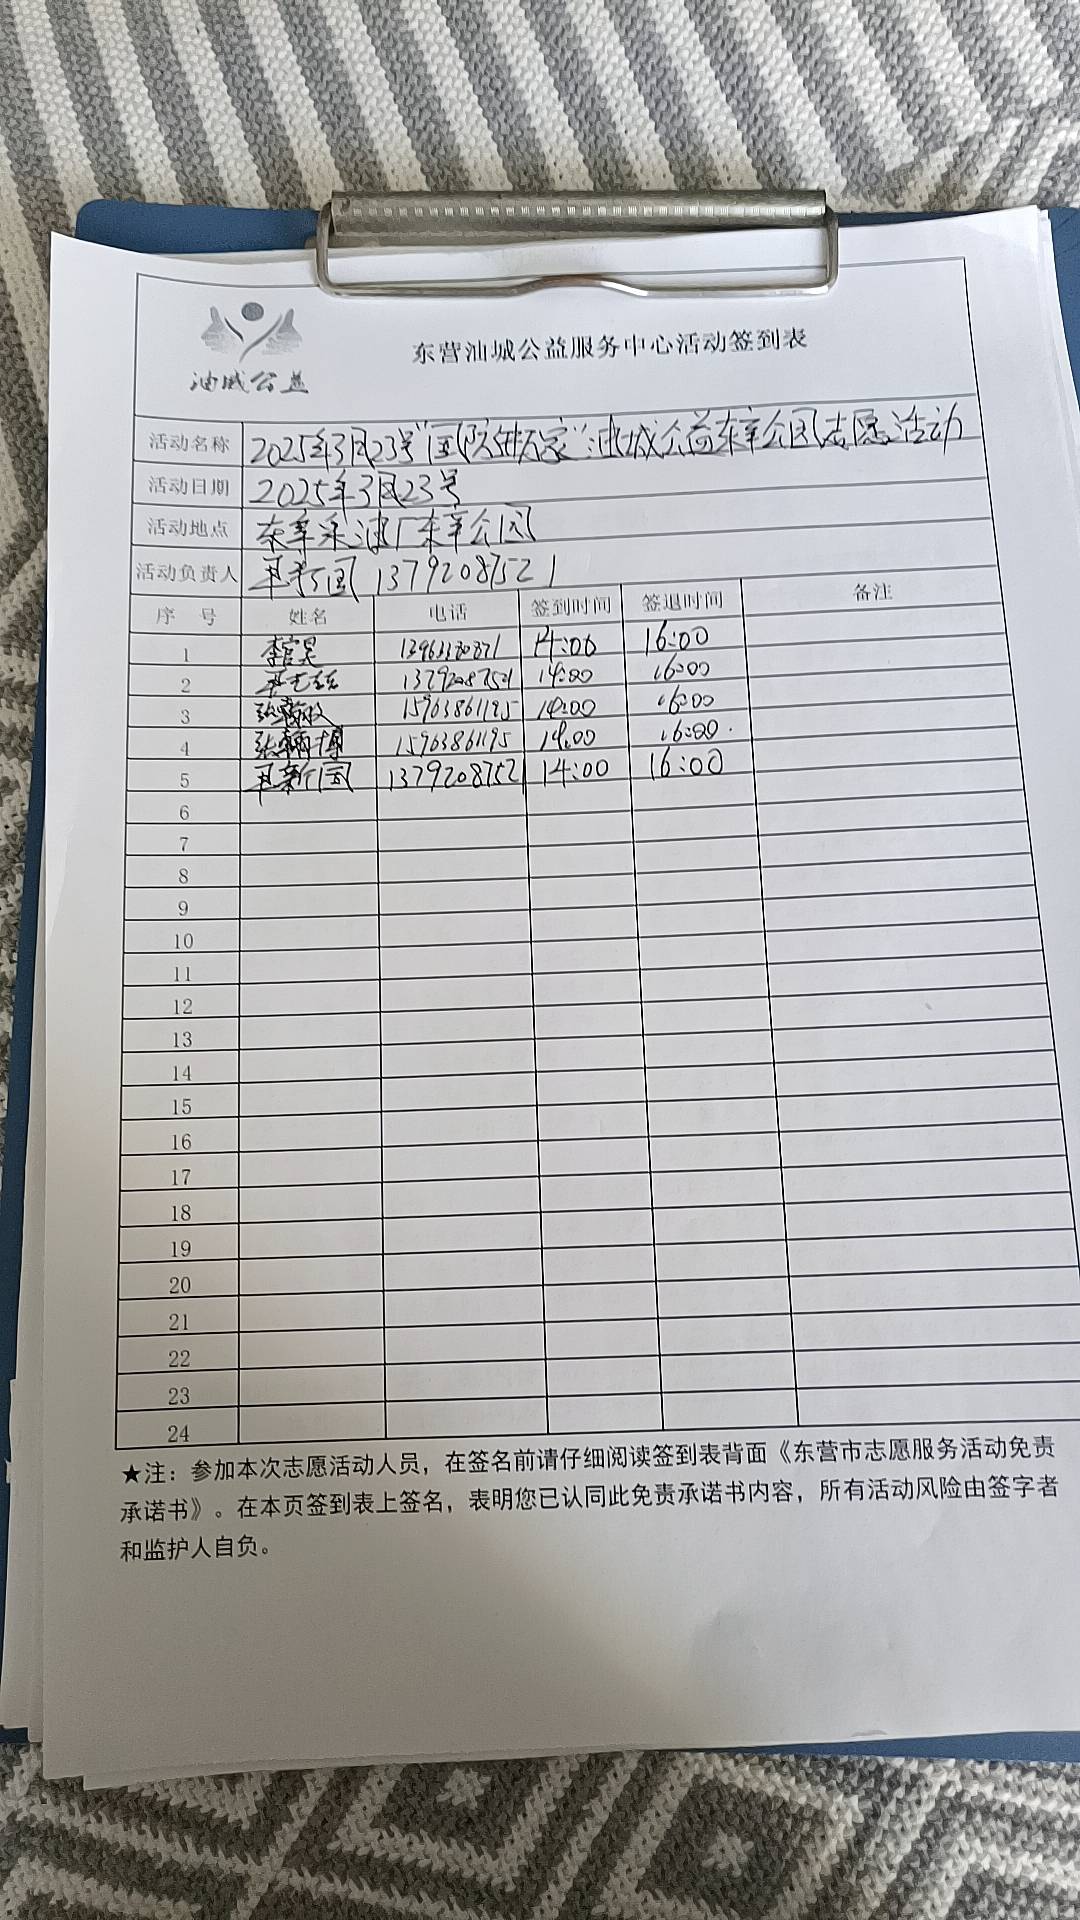 油城公益
东营油城公益服务中心活动签到表
活动名称 2025年3月23号"国防进万家"油城公益东辛公园志愿活动
活动日期 2025年3月23号
活动地点 东辛采油厂东辛公园
活动负责人 新国 13792087521
序 号 姓名 电话 签到时间 签退时间 备注
1 李官昊 14:00 16:00
2 13792087521 14:00 16:00
3 张 15963861195 14:00 16:00
4 张翰博 15963861195 14:00 16:00
5 新国 13792087521 14:00 16:00
6
7
8
9
10
11
12
13
14
15
16
17
18
19
20
21
22
23
24
★注：参加本次志愿活动人员，在签名前请仔细阅读签到表背面《东营市志愿服务活动免责
承诺书》。在本页签到表上签名，表明您已认同此免责承诺书内容，所有活动风险由签字者
和监护人自负。